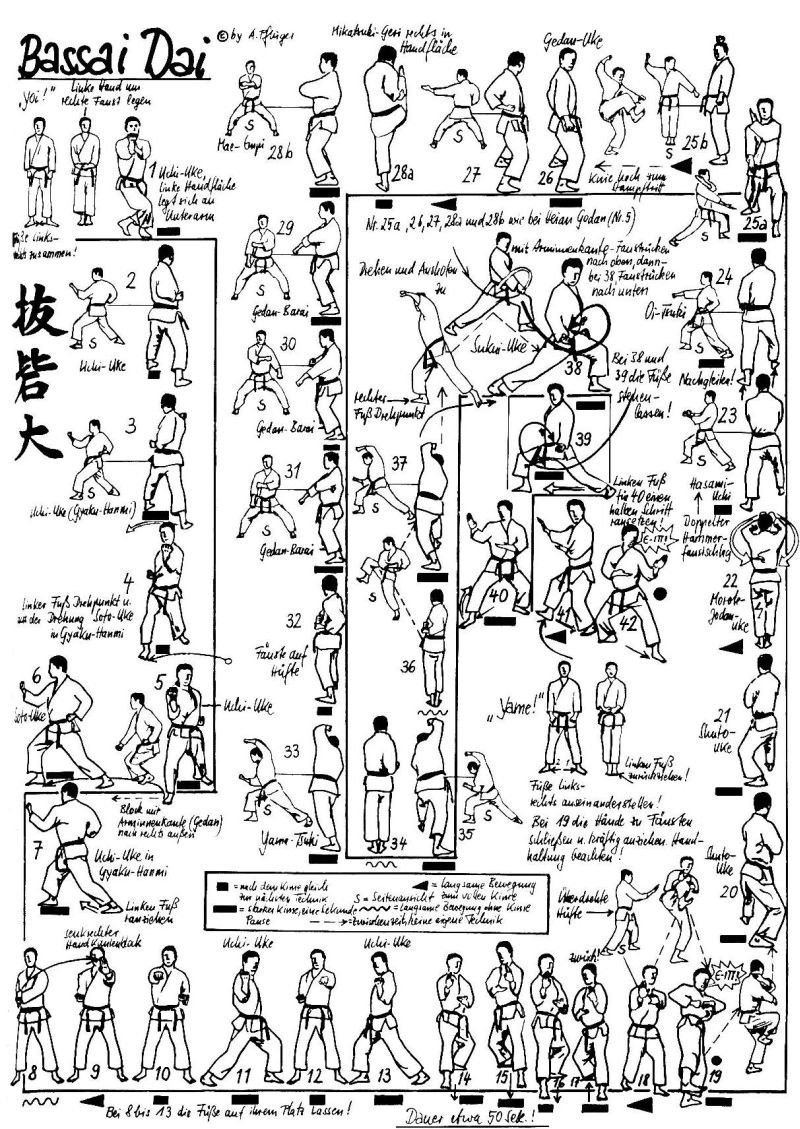 Bassai Dai
© by A. Pflüger
"Yoi!"
Linke Hand um
rechte Faust legen
1 Uchi-Uke,
linke Handfläche
legt sich an
Unterarm
Füße links-
rechts zusammen!
抜
砦
大
2
S
Uchi-Uke
3
S
Uchi-Uke (Gyaku-Hanmi)
4
Linken Fuß Drehpunkt u.
mit der Drehung Soto-Uke
in Gyaku-Hanmi
5
Uchi-Uke
6
Soto-Uke
Block mit
Arminnenkante (Gedan)
nach rechts außen
7
Uchi-Uke in
Gyaku-Hanmi
Linken Fuß
ranziehen
senkrechter
Handkantenblock
8
9
10
Uchi-Uke
11
12
Uchi-Uke
13
14
15
16
17
zurück!
18
19
Bei 8 bis 13 die Füße auf ihrem Platz lassen!
Dauer etwa 50 Sek.!
Überdrehte
Hüfte
S
Shuto-
Uke
20
21
Shuto-
Uke
22
Morote-
Jodan-
Uke
Doppelter
Hammer-
faustschlag
Hasami-
Uchi
23
S
24
S
Oi-Tsuki
Nachgleiten!
25a
S
25b
S
Knie hoch zum
Stampftritt
Gedan-Uke
26
27
S
Mikatsuki-Geri rechts in
Handfläche
28a
28b
S
Mae-Empi
Nr. 25a, 26, 27, 28a und 28b wie bei Heian Godan (Nr. 5)
29
S
Gedan-Barai
30
S
Gedan-Barai
31
S
Gedan-Barai
32
Fäuste auf
Hüfte
33
S
Yama-Tsuki
34
35
S
36
S
37
S
Drehen und Ausholen
zu
Sukui-Uke
rechter
Fuß Drehpunkt
mit Arminnenkante-Faustrücken
nach oben, dann
bei 38 Faustrücken
nach unten
38
Bei 38 und
39 die Füße
stehen-
lassen!
39
Linken Fuß
für 40 einen
halben Schritt
ransetzen!
40
41
42
"Yame!"
Linken Fuß
zurückziehen!
Füße links-
rechts auseinanderstellen!
Bei 19 die Hände zu Fäusten
schließen u. kräftig anziehen. Hand-
haltung beachten!
= nach dem Kime gleich
zur nächsten Technik
= langsame Bewegung
S = Seitenansicht zum vollen Kime
= starkes Kime, eine Sekunde
Pause
= langsame Bewegung ohne Kime
= Zwischenzeit, keine eigene Technik